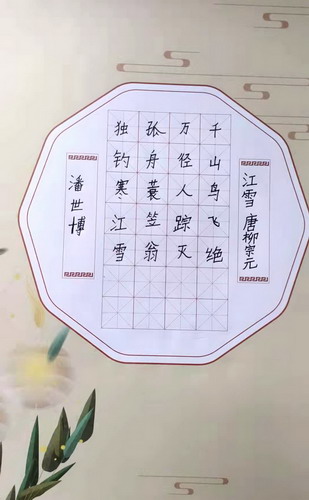 江雪 唐柳宗元
千山鸟飞绝
万径人踪灭
孤舟蓑笠翁
独钓寒江雪
潘世博